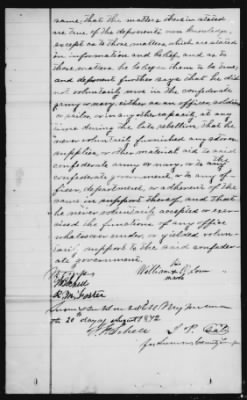 same, that the matters therein stated
are true of the deponent's own knowledge,
except as to those matters which are stated
on information and belief, and as to
those matters he believes them to be true,
and deponent further says that he did
not voluntarily serve in the confederate
army or navy, either as an officer, soldier
or sailor, or in any other capacity, at any
time during the late rebellion; that he
never voluntarily furnished any stores,
supplies, or other material aid to said
confederate army or navy, or to the
confederate government, or to any of-
ficer, department, or adherent of the
same in support thereof, and that
he never voluntarily accepted or exer-
cised the functions of any office
whatsoever under, or yielded volun-
tary support to the said confeder-
ate government.
his
William X
mark
Foster
Sworn to and
the 20th day of August 1872
J. P.